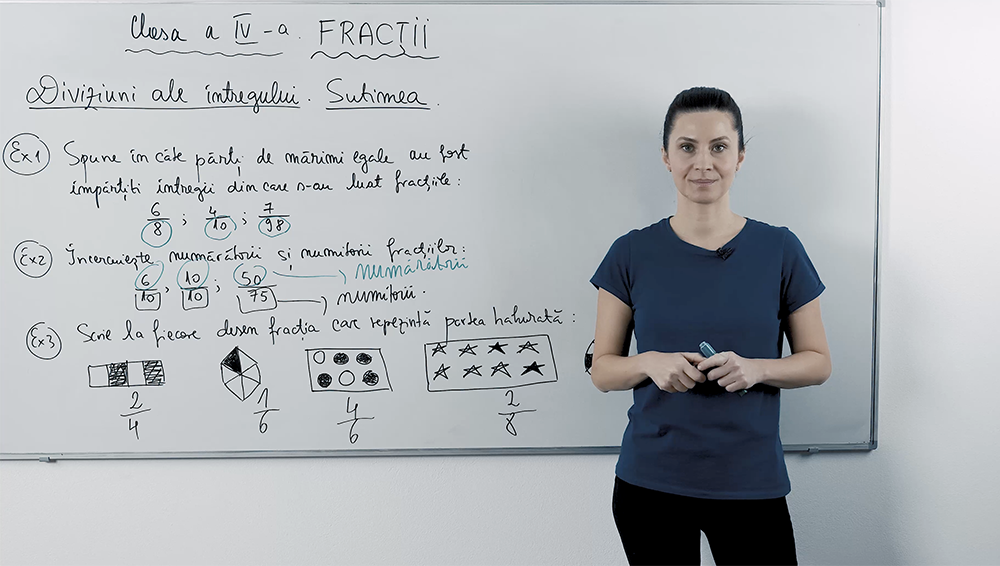 Clasa a IV-a. FRACȚII
Diviziuni ale întregului. Sutimea.
Ex1 Spune în câte părți de mărimi egale au fost
împărțiți întregii din care s-au luat fracțiile:
6/8 ; 4/10 ; 7/98
Ex2 Încercuiește numărătorii și numitorii fracțiilor:
6/10, 10/10, 50/75 numărătorii
numitorii.
Ex3 Scrie la fiecare desen fracția care reprezintă partea hașurată:
2/4 1/6 4/6 2/8